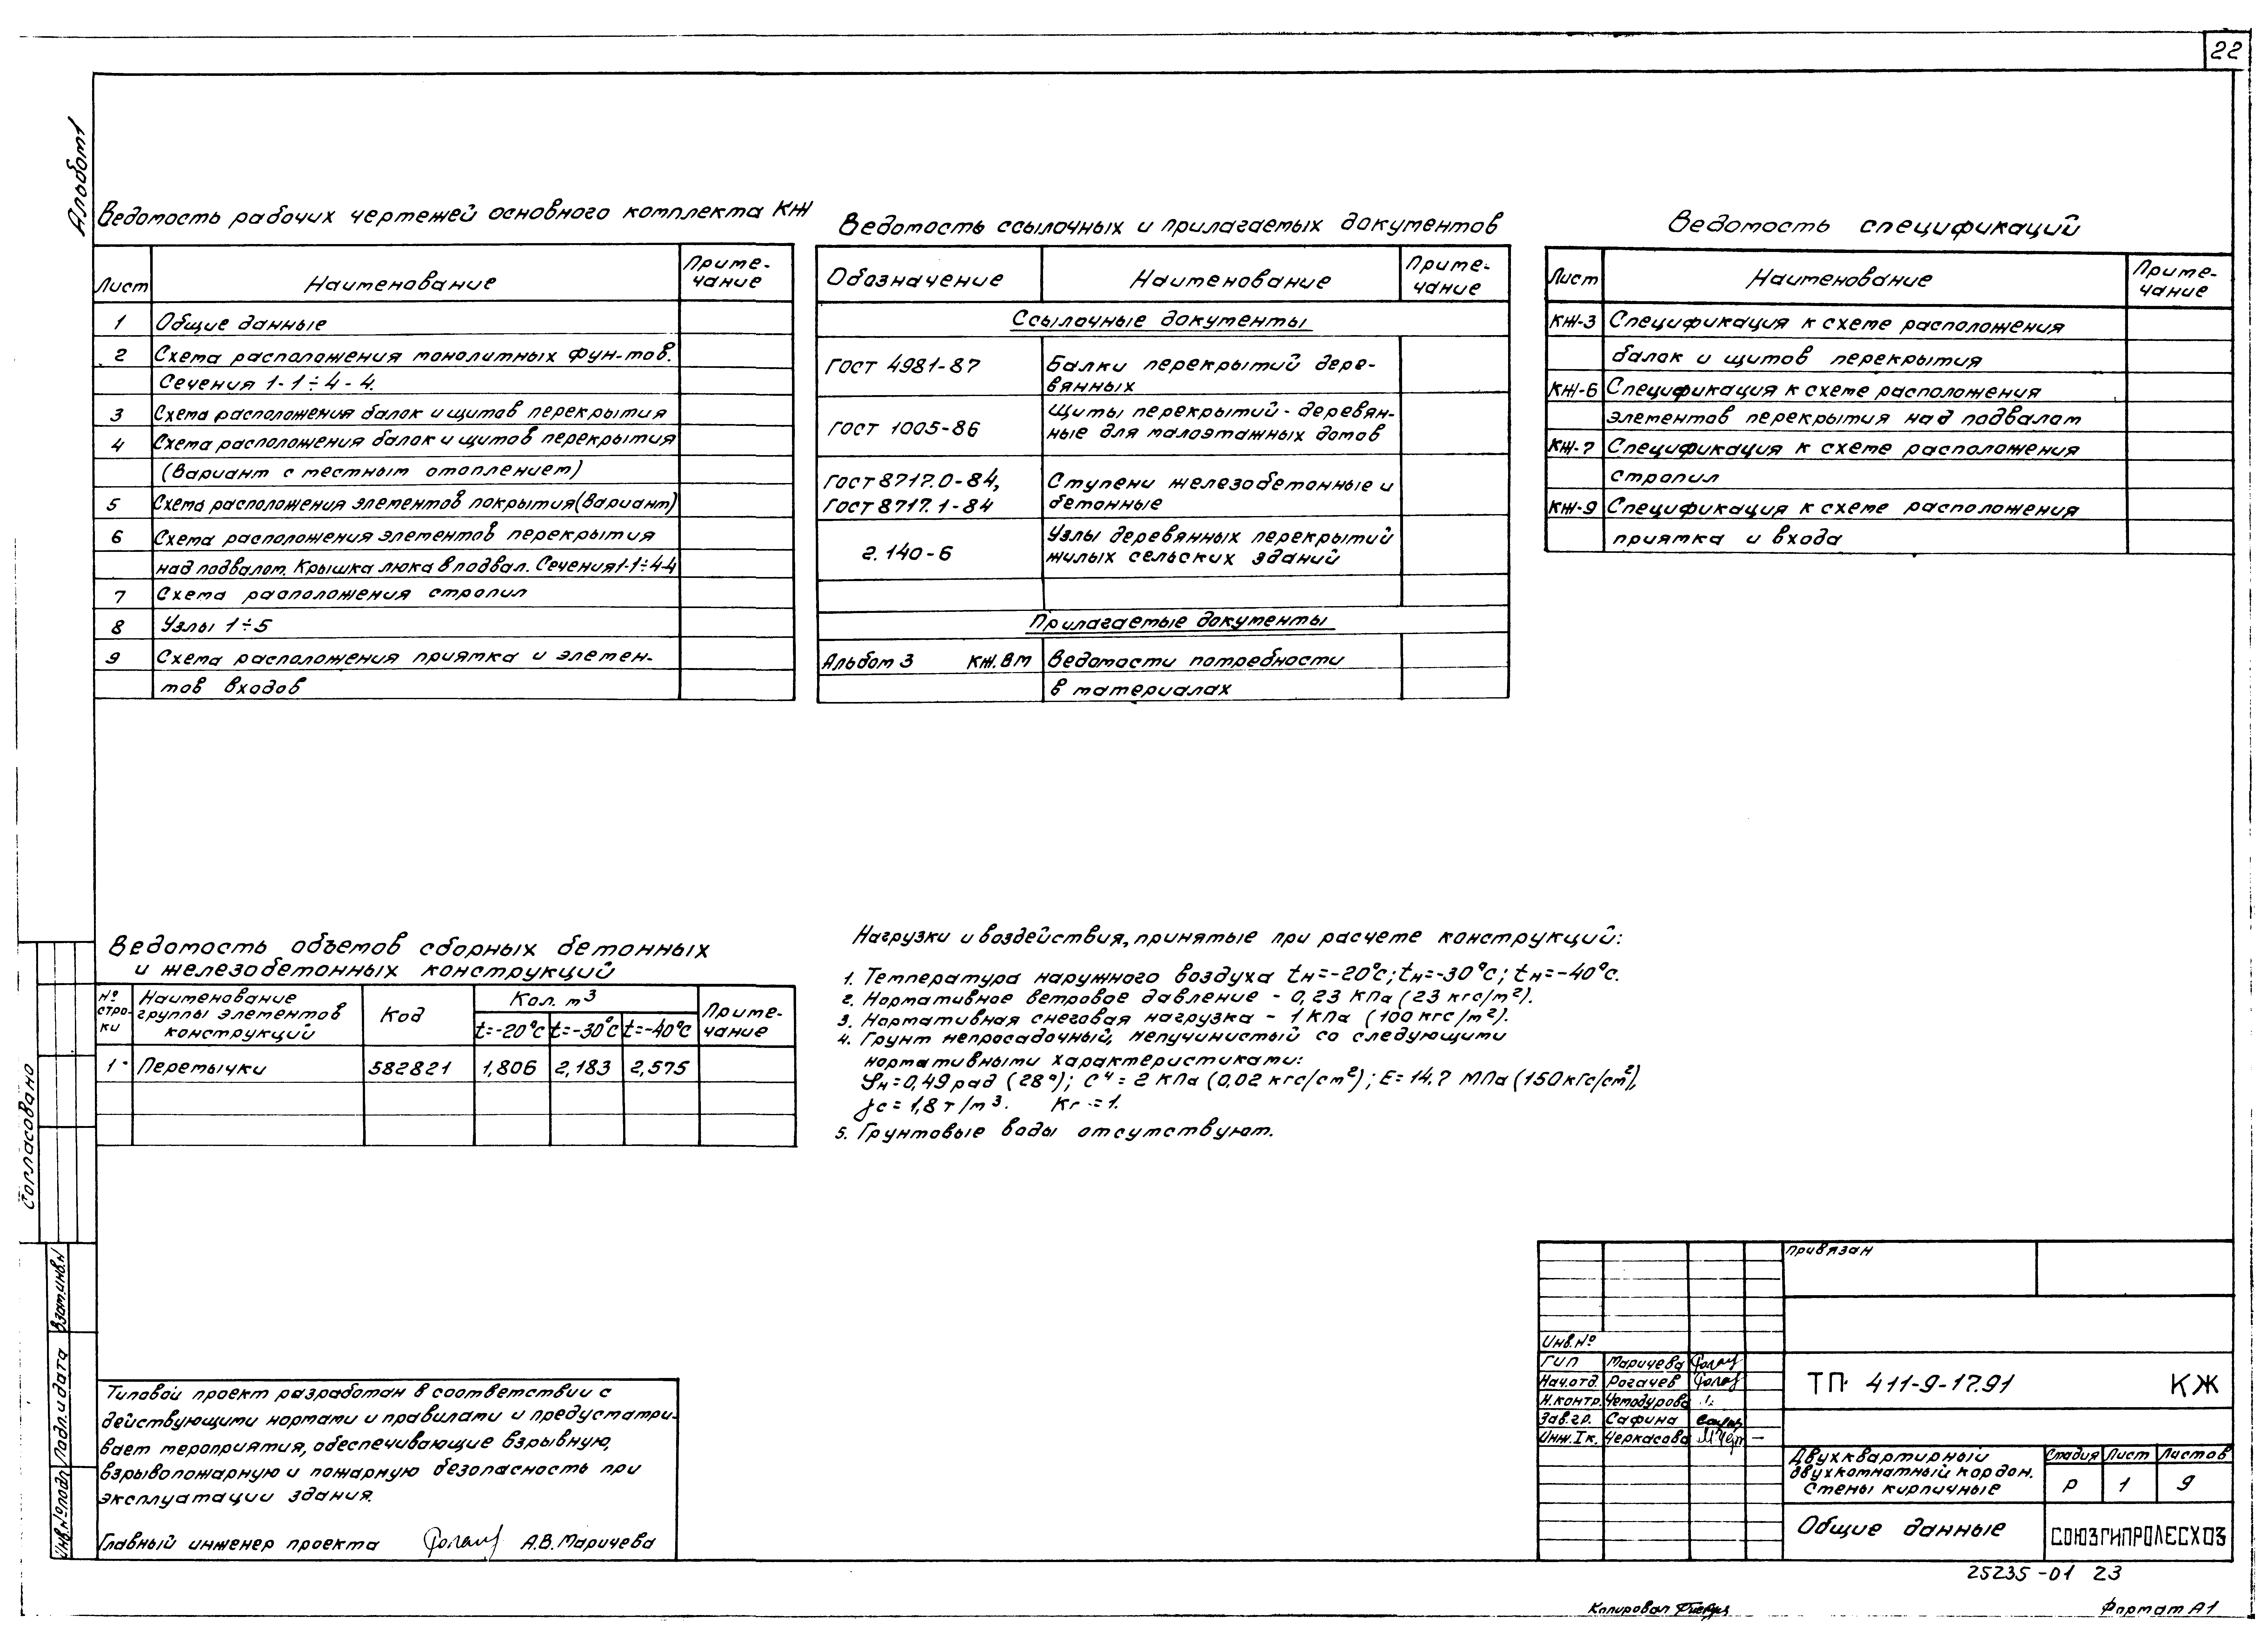 22
Альбом 1
Ведомость рабочих чертежей основного комплекта КЖ
Лист Наименование Приме-
чание
1 Общие данные
2 Схема расположения монолитных фун-тов.
Сечения 1-1÷4-4.
3 Схема расположения балок и щитов перекрытия
4 Схема расположения балок и щитов перекрытия
(Вариант с местным отоплением)
5 Схема расположения элементов покрытия (Вариант)
6 Схема расположения элементов перекрытия
над подвалом. Крышка люка в подвал. Сечения 1-1÷4-4
7 Схема расположения стропил
8 Узлы 1÷5
9 Схема расположения приямка и элемен-
тов входов
Ведомость ссылочных и прилагаемых документов
Обозначение Наименование Приме-
чание
Ссылочные документы
ГОСТ 4981-87 Балки перекрытий дере-
вянных
ГОСТ 1005-86 Щиты перекрытий - деревян-
ные для малоэтажных домов
ГОСТ 8717.0-84, Ступени железобетонные и
ГОСТ 8717.1-84 бетонные
2.140-6 Узлы деревянных перекрытий
жилых сельских зданий
Прилагаемые документы
Альбом 3 КЖ.ВМ Ведомости потребности
в материалах
Ведомость спецификаций
Лист Наименование Приме-
чание
КЖ-3 Спецификация к схеме расположения
балок и щитов перекрытия
КЖ-6 Спецификация к схеме расположения
элементов перекрытия над подвалом
КЖ-7 Спецификация к схеме расположения
стропил
КЖ-9 Спецификация к схеме расположения
приямка и входа
Ведомость объемов сборных бетонных
и железобетонных конструкций
№ стро-
ки Наименование группы элементов конструкций Код Кол. м³ Приме-
чание
t=-20°С t=-30°С t=-40°С
1 Перемычки 582821 1,806 2,183 2,575
Нагрузки и воздействия, принятые при расчете конструкций:
1. Температура наружного воздуха tн=-20°С; tн=-30°С; tн=-40°С.
2. Нормативное ветровое давление - 0,23 КПа (23 кгс/м²).
3. Нормативная снеговая нагрузка - 1 КПа (100 кгс/м²).
4. Грунт непросадочный, непучинистый со следующими
нормативными характеристиками:
φн=0,49 рад (28°); Сн = 2 КПа (0,02 кгс/см²); Е=14.7 МПа (150 кгс/см²),
γс=1,8 т/м³. Кг=1.
5. Грунтовые воды отсутствуют.
Согласовано
Взам.инв.N
Подп. и дата
Инв.№ подл
Типовой проект разработан в соответствии с
действующими нормами и правилами и предусматри-
вает мероприятия, обеспечивающие взрывную,
взрывопожарную и пожарную безопасность при
эксплуатации здания.
Главный инженер проекта А.В. Маричева
Привязан
Инв.№
ГИП Маричева
Нач.отд. Рогачев
Н.контр. Чемодурова
Зав.гр. Сафина
Инж.Iк. Черкасова
ТП· 411-9-17.91 КЖ
Двухквартирный
двухкомнатный кордон.
Стены кирпичные
Стадия Лист Листов
Р 1 9
Общие данные
СОЮЗГИПРОЛЕСХОЗ
25235-01 23
Копировал
Формат А1